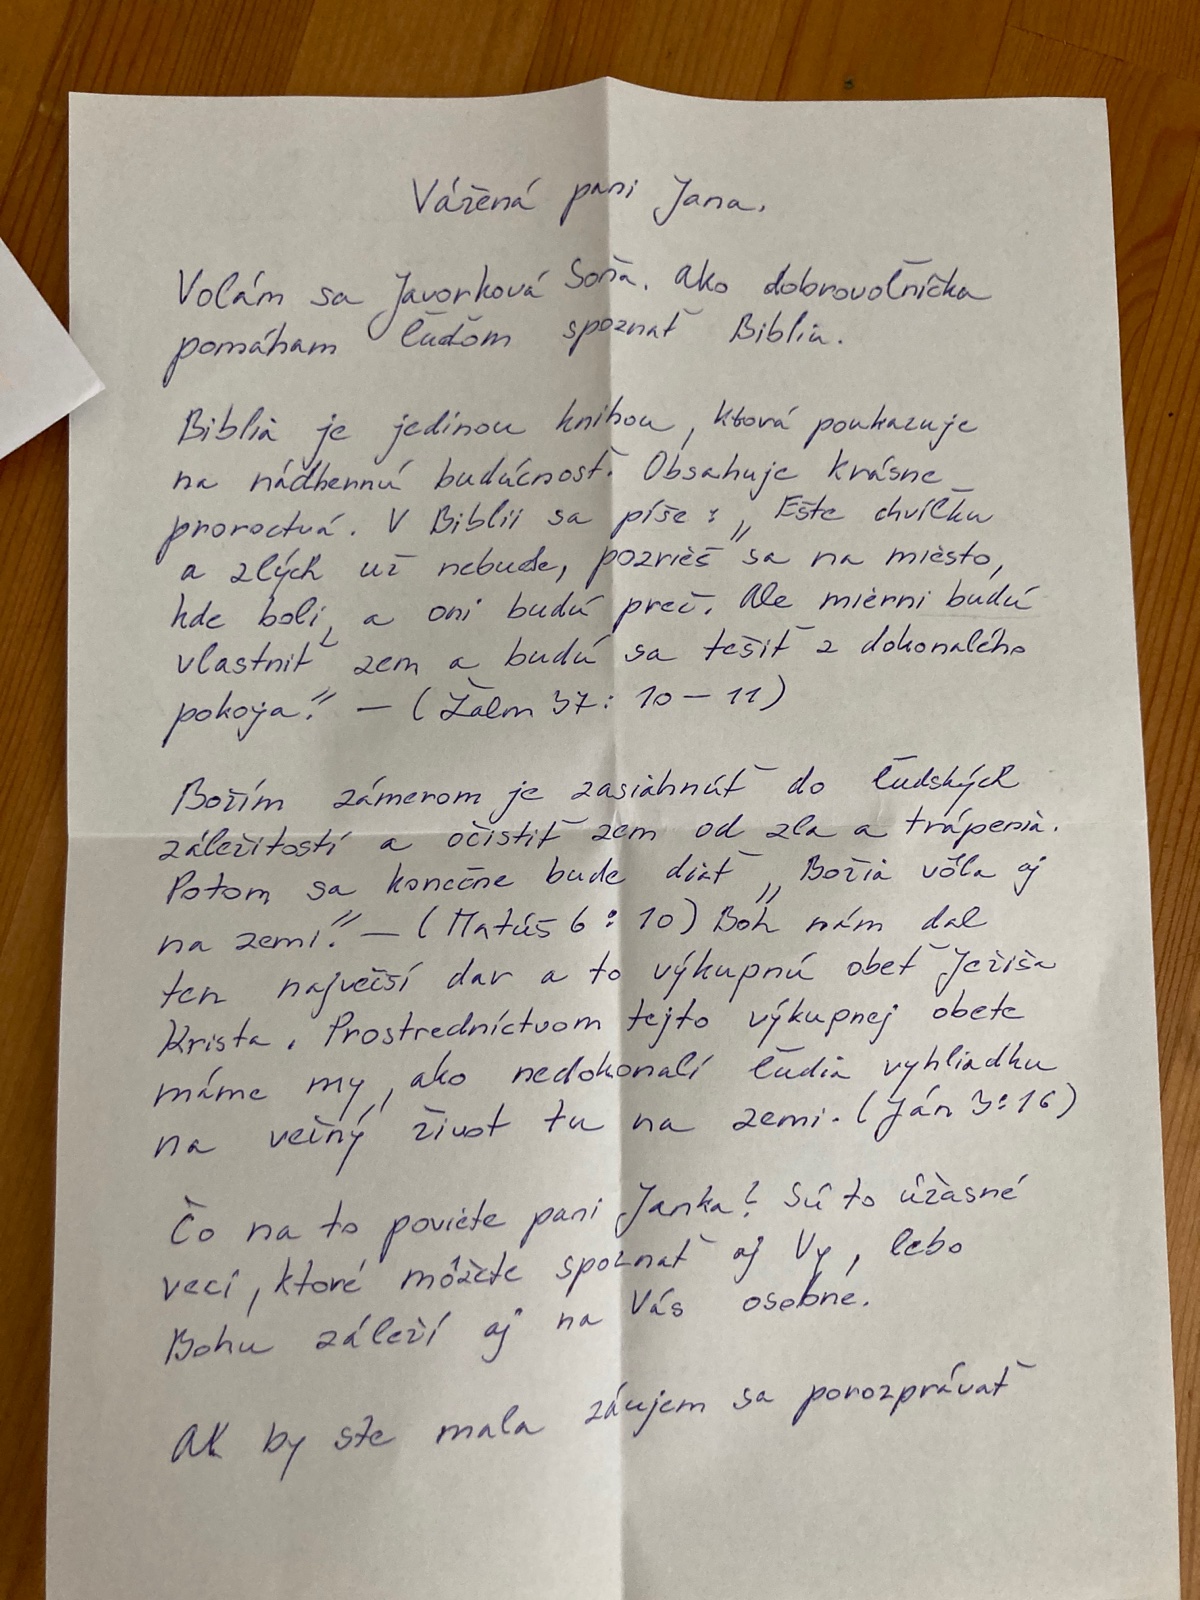 Vážená pani Jana.
Volám sa Javorková Soňa. Ako dobrovoľníčka
pomáham ľuďom spoznať Bibliu.
Biblia je jedinou knihou, ktorá poukazuje
na nádhernú budúcnosť. Obsahuje krásne
proroctvá. V Biblii sa píše: „Ešte chvíľku
a zlých už nebude, pozrieš sa na miesto,
kde boli, a oni budú preč. Ale mierni budú
vlastniť zem a budú sa tešiť z dokonalého
pokoja." – (Žalm 37: 10 – 11)
Božím zámerom je zasiahnúť do ľudských
záležitostí a očistiť zem od zla a trápenia.
Potom sa konečne bude diať „Božia vôľa aj
na zemi." – (Matúš 6: 10) Boh nám dal
ten največší dar a to výkupnú obeť Ježiša
Krista. Prostredníctvom tejto výkupnej obete
máme my, ako nedokonalí ľudia vyhliadku
na večný život tu na zemi. (Ján 3:16)
Čo na to poviete pani Janka? Sú to úžasné
veci, ktoré môžete spoznať aj Vy, lebo
Bohu záleží aj na Vás osobne.
Ak by ste mala záujem sa porozprávať